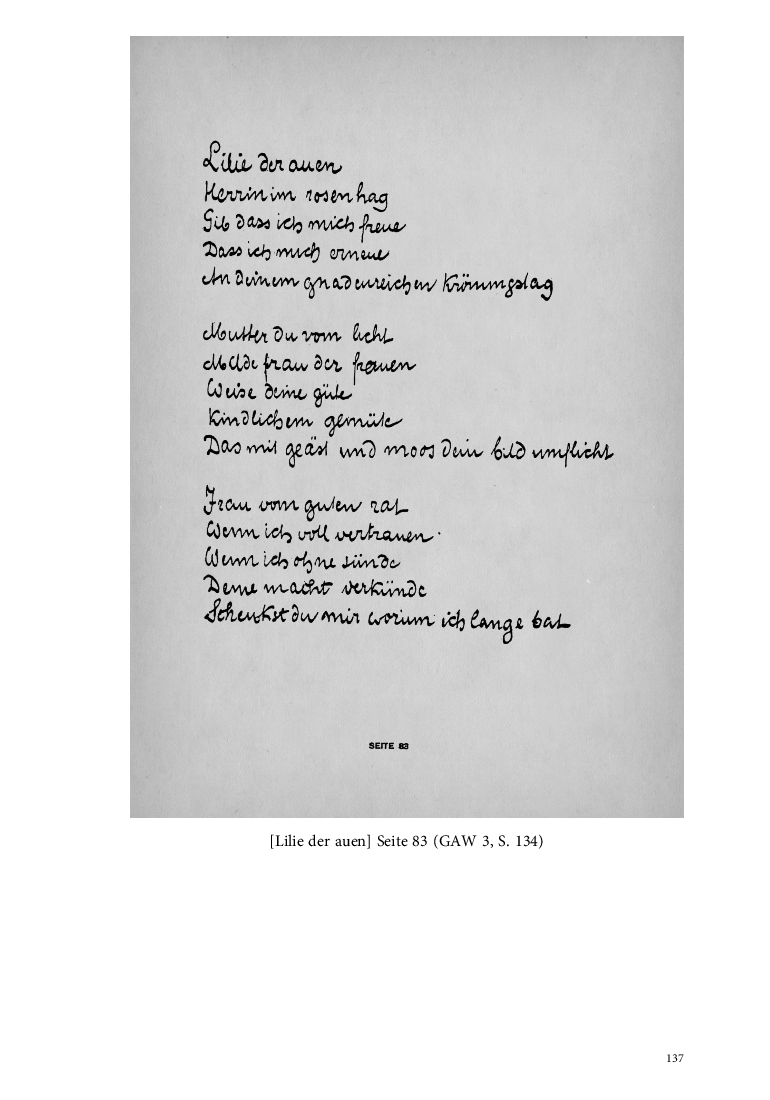 Lilie der auen
Herrin im rosenhag
Gib dass ich mich freue
Dass ich mich erneue
An deinem gnadenreichen Krönungstag
Mutter du vom licht
Milde frau der frauen
Weise deine güte
Kindlichem gemüte
Das mit geäst und moos dein bild umflicht
Frau vom guten rat
Wenn ich voll vertrauen ·
Wenn ich ohne sünde
Deine macht verkünde
Schenkst du mir worum ich lange bat
SEITE 83
[Lilie der auen] Seite 83 (GAW 3, S. 134)
137